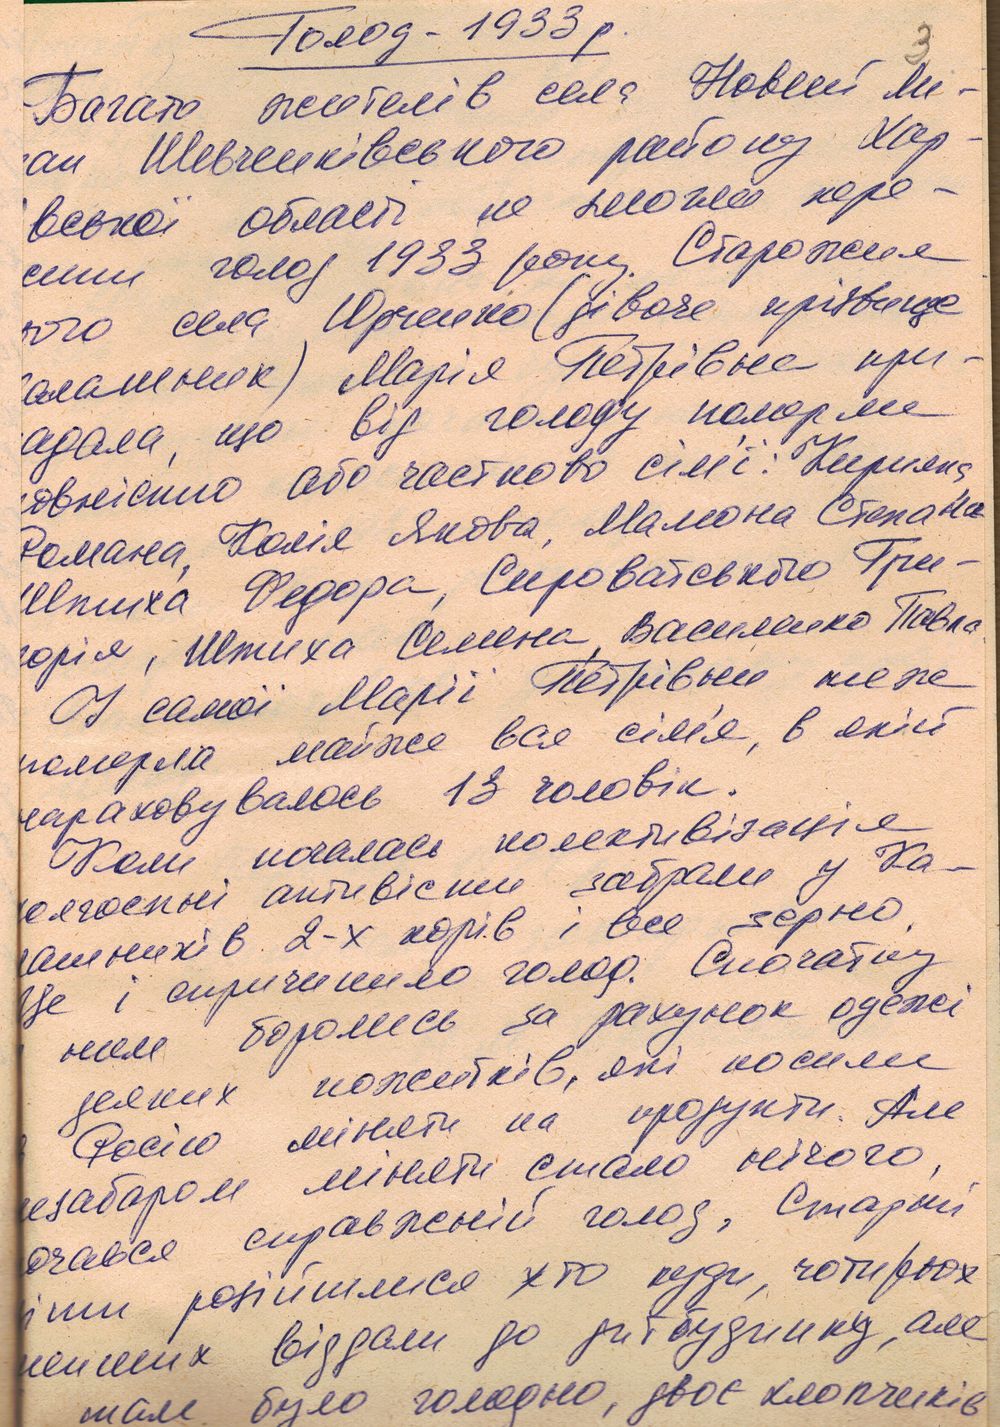 Голод - 1933 р.
3
Багато жителів села Новий Ли-
ман Шевченківського району Хар-
івської області не змогли пере-
голод 1933 року. Старожил
ого села Юрченко (дівоче прізвище
алашник) Марія Петрівна при-
адала, що від голоду померли
овністю або частково сім'ї: Кирияка
Романа, Колія Якова, Мамона Степана
Шпиха Федора, Сироватського Гри-
горія, Шпиха Семена, Василенко Павла
У самої Марії Петрівни теж
померла майже вся сім'я, в якій
нараховувалось 13 чоловік.
Коли почалась колективізація
колгоспні активісти забрали у Ка-
лашників 2-х корів і все зерно.
Це і спричинило голод. Спочатку
ним боролись за рахунок одежі
деяких пожитків, які носили
в Росію міняти на продукти. Але
незабаром міняти стало нічого,
почався справжній голод. Старші
діти розійшлися хто куди, чотирьох
менших віддали до дитбудинку, але
там було голодно, двоє хлопчиків